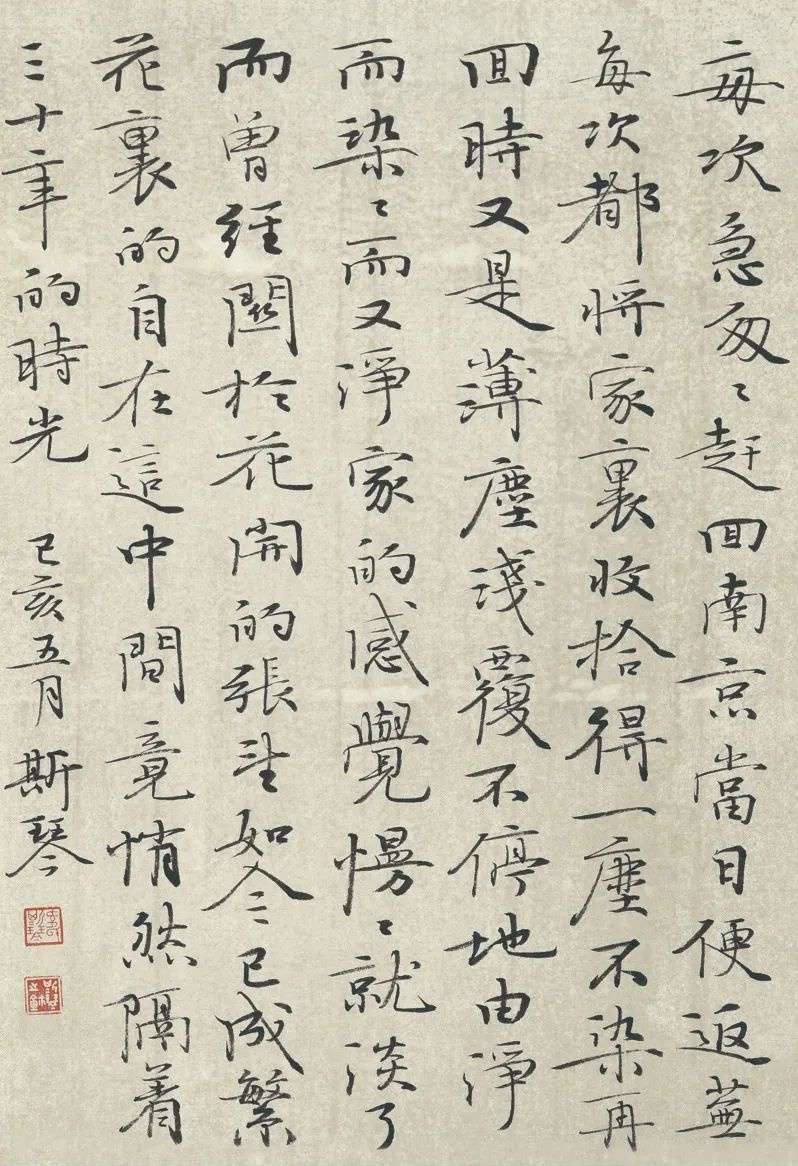 每次急匆〻赶回南京當日便返蕪
每次都將家裏收拾得一塵不染再
回時又是薄塵淺覆不停地由淨
而染〻而又淨家的感覺慢〻就淡了
而曾經關於花開的張望如今已成繁
花裏的自在這中間竟悄然隔着
三十年的時光 己亥五月 斯琴